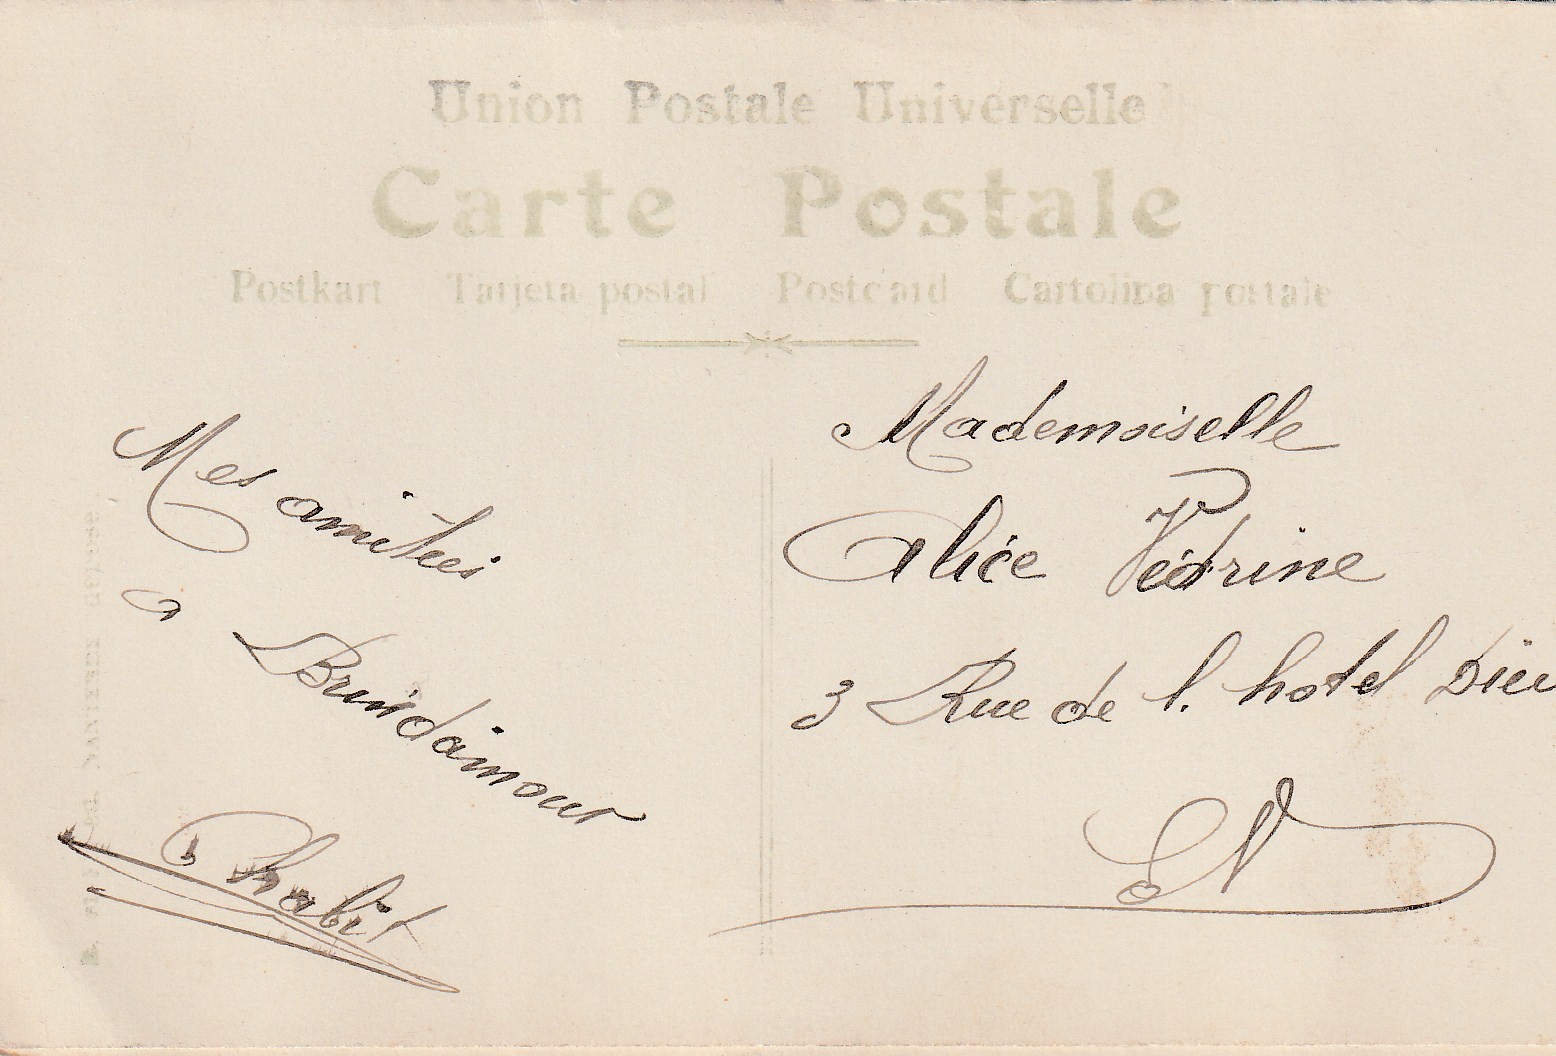 Union Postale Universelle
Carte Postale
Postkart Tarjeta postal Postcard Cartolina postale
Mes amitiés
a Brindamour
Chabit
Mademoiselle
Alice Védrine
3 Rue de l. hotel Dieu